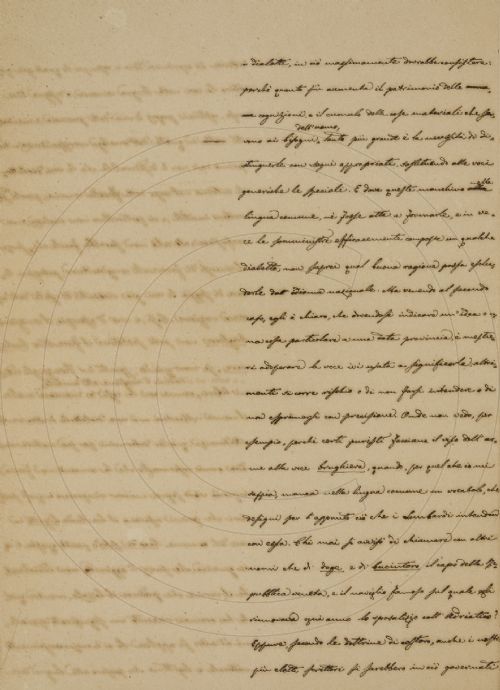 o dialetto, in ciò massimamente dovrebbe consistere:
perchè quanto più aumenta il patrimonio delle
cognizioni, e il cumulo delle cose materiale che ser
dell'uomo,
vono ai bisogni, tanto più grande è la necessità di di
stinguerle con segni appropriati, sostituendo alle voci
generiche le speciale. E dove questi manchino alla
lingua comune, nè fosse atta a formarle, e in ve
ce le somministri efficacemente composte un qualche
dialetto, non saprei qual buona ragione possa esclu
derle dall'Idioma nazionale. Ma venendo al secondo
caso, egli è chiaro, che dovendosi indicare un'Idea o u
na cosa particolare a una data provincia, è mestie
ri adoperare la voce ivi usata a significarla, altri
menti si corre rischio o di non farsi intendere o di
non esprimersi con precisione. Onde non vedo, per
esempio, perchè certi puristi facciano il viso dell'ar
me alla voce brughiera, quando, per quel che io mi
sappia, manca nella lingua comune un vocabolo, che
disegni per l'appunto ciò che i Lombardi intendono
con essa. Chi mai si avvisò di chiamare con altri
nomi che di doge, e di bucintoro, il capo della re
pubblica veneta, e il naviglio famoso sul quale egli
rinnovava ogni anno lo sposalizio coll'Adriatico?
Eppure secondo le dottrine di costoro, anche i nostri
più eletti scrittori si sarebbero in ciò governati